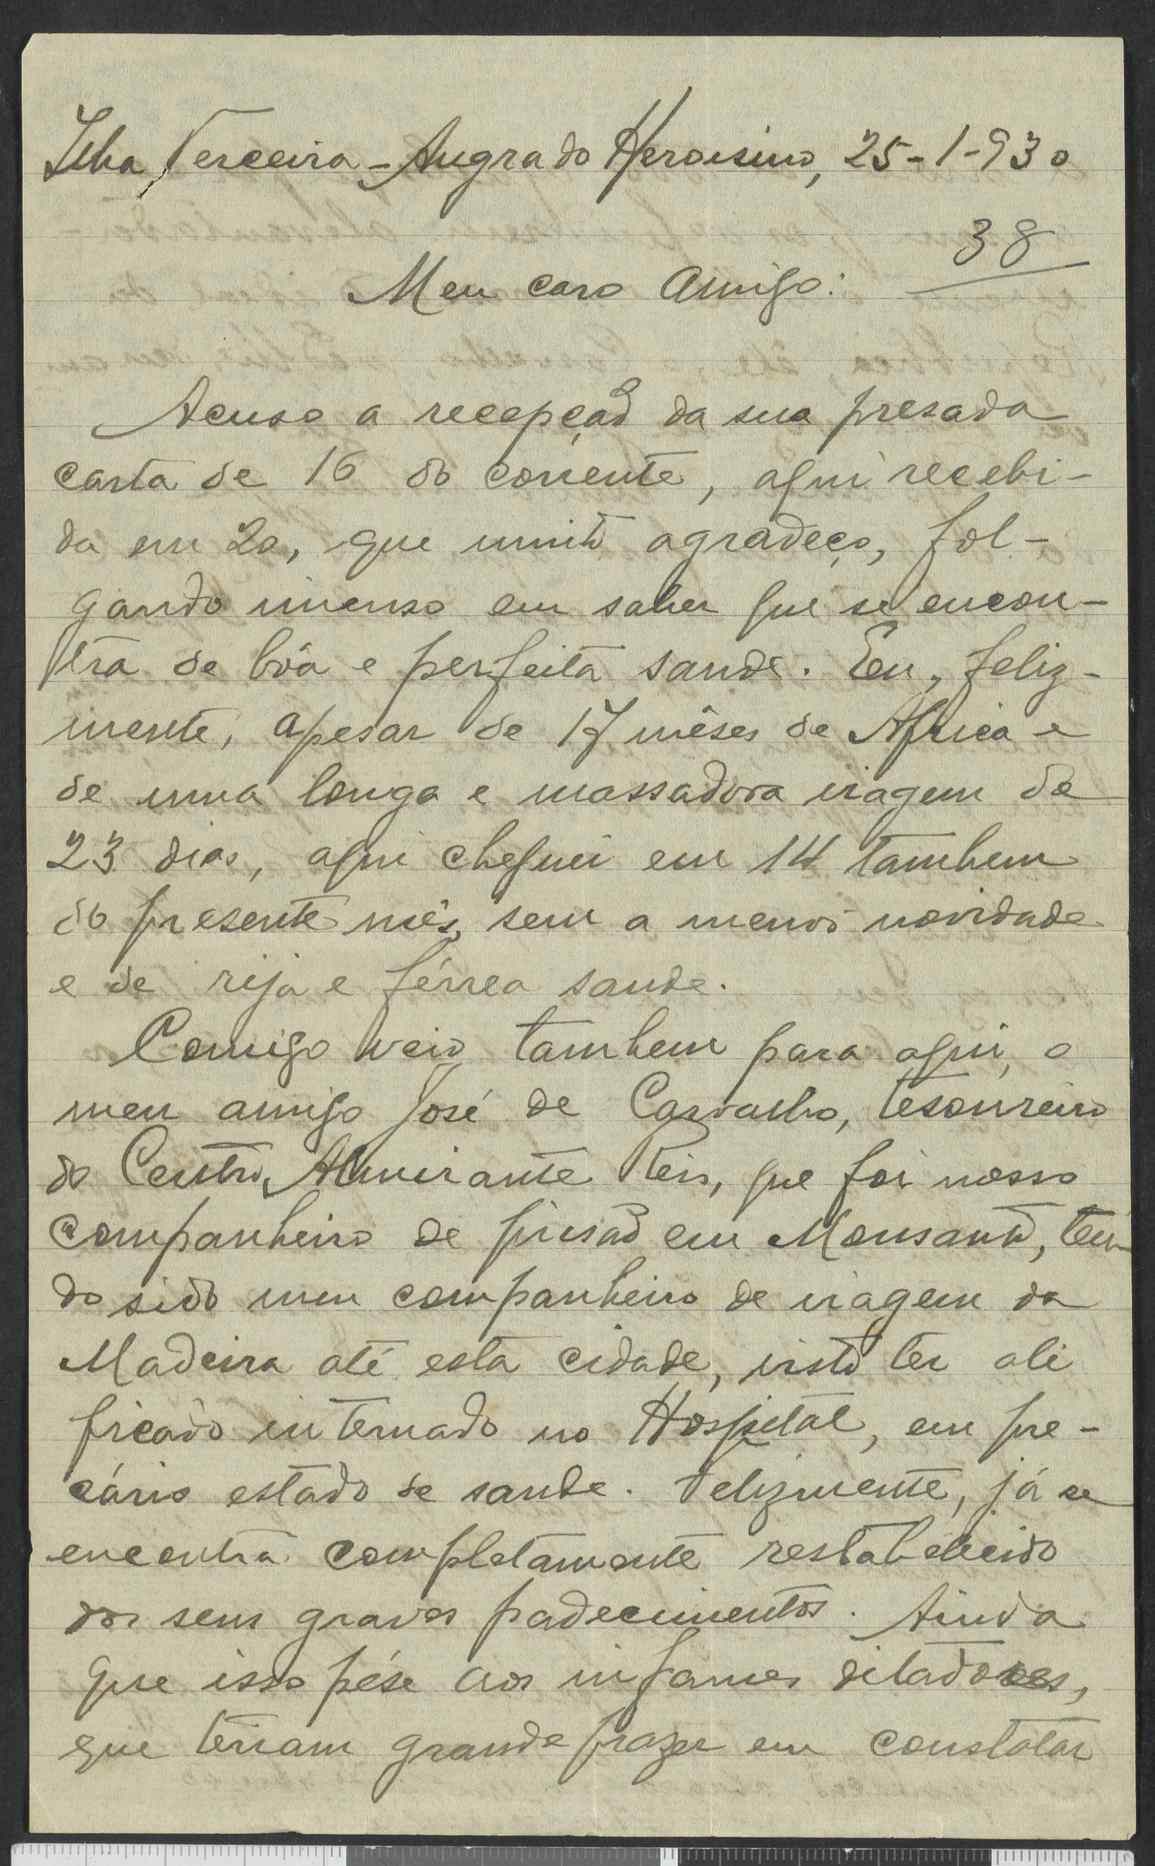 Ilha Terceira - Angra do Heroismo, 25-1-930
38
Meu caro Amigo:
Acuso a recepção da sua presada
carta de 16 do corrente, aqui recebi-
da em 20, que muito agradeço, fol-
gando imenso em saber que se encon-
tra de bôa e perfeita saude. Eu, feliz-
mente, apesar de 17 mêses de Africa e
de uma longa e massadora viagem de
23 dias, aqui cheguei em 14 tambem
do presente mês, sem a menor novidade
e de rija e férrea saude.
Comigo veio tambem para aqui, o
meu amigo José de Carvalho, tesoureiro
do Centro Almirante Reis, que foi nosso
companheiro de prisão em Monsanto, ten-
do sido meu companheiro de viagem da
Madeira até esta cidade, visto ter ali
ficado internado no Hospital, em pre-
cário estado de saude. Felizmente, já se
encontra completamente restabelecido
dos seus graves padecimentos. Ainda
que isso pése aos infames ditadores,
que teriam grande prazer em constatar